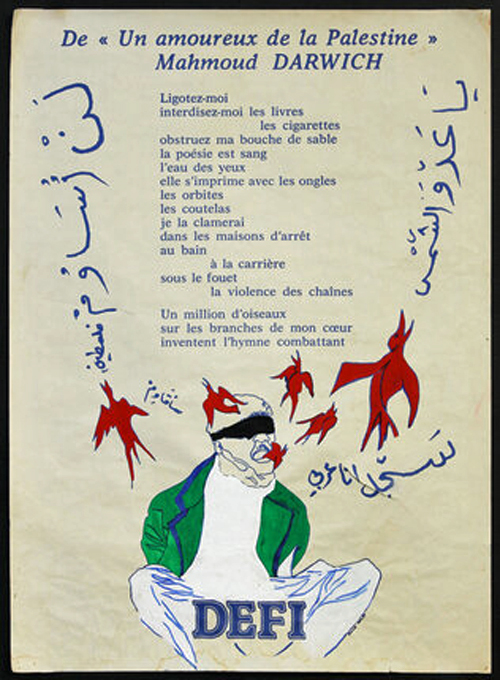 De « Un amoureux de la Palestine »
Mahmoud DARWICH
Ligotez-moi
interdisez-moi les livres
les cigarettes
obstruez ma bouche de sable
la poésie est sang
l'eau des yeux
elle s'imprime avec les ongles
les orbites
les coutelas
je la clamerai
dans les maisons d'arrêt
au bain
à la carrière
sous le fouet
la violence des chaînes
Un million d'oiseaux
sur les branches de mon cœur
inventent l'hymne combattant
يَا عَدُوَّ الشَّمْسِ
لَنْ أُسَاوِمْ
فلسطين
سنقاوم
سَجِّلْ انا عربي
DEFI